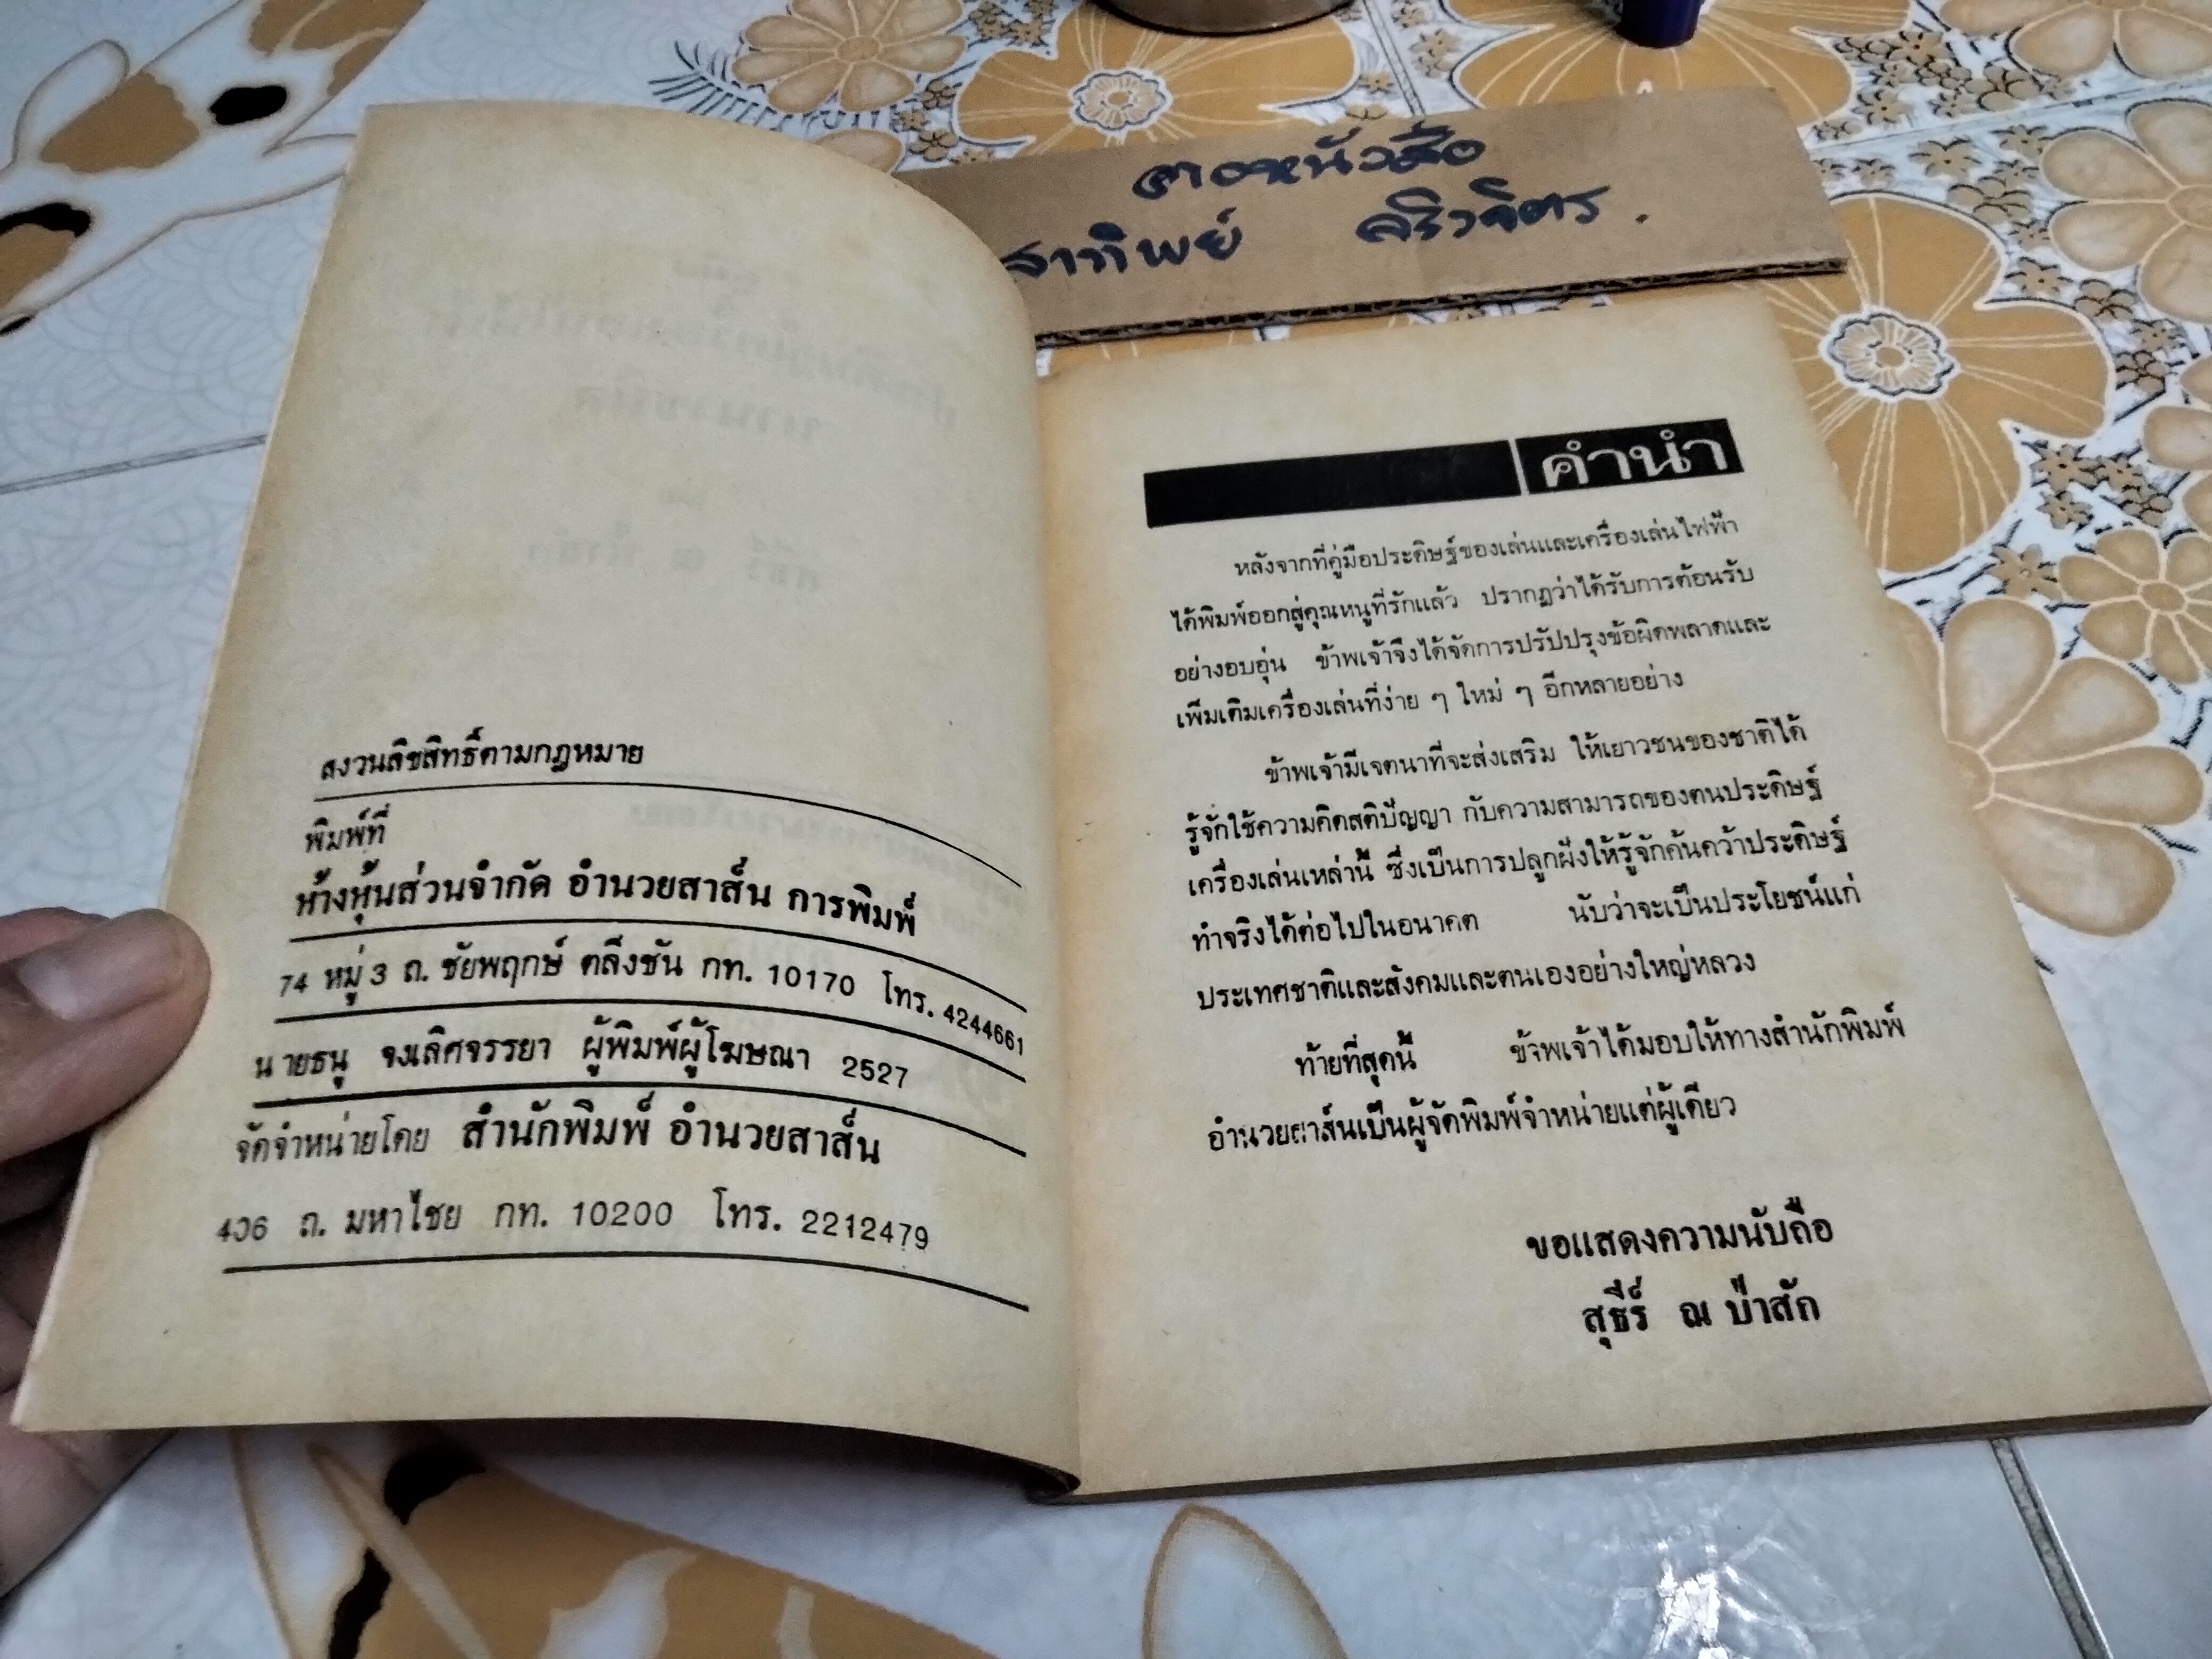 สงวนลิขสิทธิ์ตามกฎหมาย
พิมพ์ที่
ห้างหุ้นส่วนจำกัด อำนวยสาส์น การพิมพ์
74 หมู่ 3 ถ. ชัยพฤกษ์ ตลิ่งชัน กท. 10170 โทร. 4244661
นายธนู จงเลิศจรรยา ผู้พิมพ์ผู้โฆษณา 2527
จัดจำหน่ายโดย สำนักพิมพ์ อำนวยสาส์น
406 ถ. มหาไชย กท. 10200 โทร. 2212479
คำนำ
หลังจากที่คู่มือประดิษฐ์ของเล่นและเครื่องเล่นไฟฟ้า
ได้พิมพ์ออกสู่คุณหนูที่รักแล้ว ปรากฏว่าได้รับการต้อนรับ
อย่างอบอุ่น ข้าพเจ้าจึงได้จัดการปรับปรุงข้อผิดพลาดและ
เพิ่มเติมเครื่องเล่นที่ง่าย ๆ ใหม่ ๆ อีกหลายอย่าง
ข้าพเจ้ามีเจตนาที่จะส่งเสริม ให้เยาวชนของชาติได้
รู้จักใช้ความคิดสติปัญญา กับความสามารถของตนประดิษฐ์
เครื่องเล่นเหล่านี้ ซึ่งเป็นการปลูกฝังให้รู้จักค้นคว้าประดิษฐ์
ทำจริงได้ต่อไปในอนาคต นับว่าจะเป็นประโยชน์แก่
ประเทศชาติและสังคมและตนเองอย่างใหญ่หลวง
ท้ายที่สุดนี้ ข้าพเจ้าได้มอบให้ทางสำนักพิมพ์
อำนวยสาส์นเป็นผู้จัดพิมพ์จำหน่ายแต่ผู้เดียว
ขอแสดงความนับถือ
สุธีร์ ณ ป่าสัก